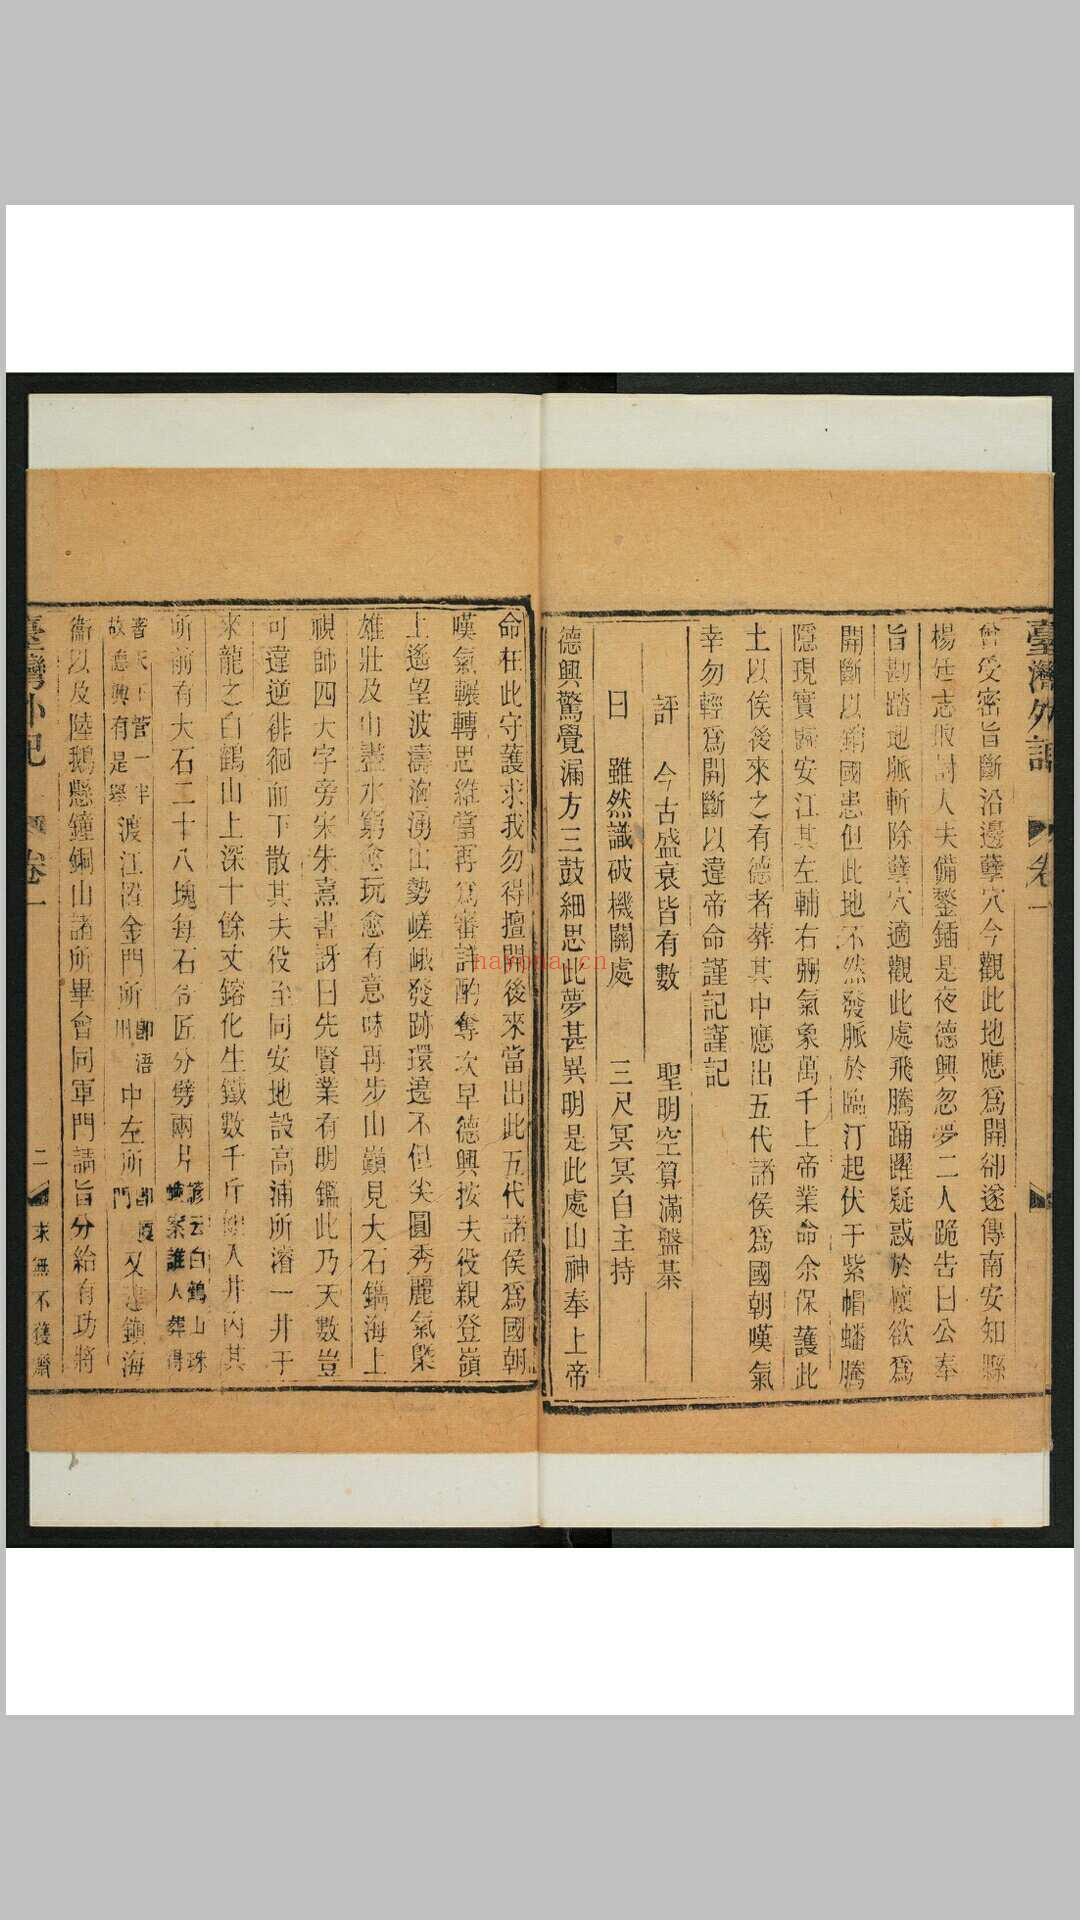 臺灣外記 卷一
曾受密旨斷沿邊孽穴今觀此地應爲開卻遂傳南安知縣
楊廷志撥討人夫備鏨鍤是夜德興忽夢二人跪告曰公奉
旨勘踏地脈斬除孽穴適觀此處飛騰踊躍疑惑於懷欲爲
開斷以銷國患但此地不然發脈於臨汀起伏于紫帽蟠騰
隱現實歸安江其左輔右弼氣象萬千上帝業命余保護此
土以俟後來之有德者葬其中應出五代諸侯爲國朝嘆氣
幸勿輕爲開斷以違帝命謹記謹記
評 今古盛衰皆有數 聖明空算滿盤棊
曰 雖然識破機關處 三尺冥冥自主持
德興驚覺漏方三鼓細思此夢甚異明是此處山神奉上帝
命在此守護求我勿得擅開後來當出此五代諸侯爲國朝
嘆氣輾轉思維當再爲審詳酌奪次早德興按夫役親登嶺
上遙望波濤洶湧山勢嵯峨發跡環遶不但尖圓秀麗氣槩
雄壯及山盡水窮愈玩愈有意味再步山巔見大石鐫海上
視師四大字旁宋朱熹書訝曰先賢業有明鑑此乃天數豈
可違逆徘徊而下散其夫役至同安地設高浦所濬一井于
來龍之白鶴山上深十餘丈鎔化生鐵數千斤 入井內其
所前有大石二十八塊每石令匠分劈兩片 諺云白鶴山珠 案誰人葬得
著天下管一半 故德興有是舉 渡江 金門所 卽浯 州 中左所 卽廈 門 又 鎮海
衞以及陸鵝懸鐘銅山諸所畢會同軍門請旨分給有功將
臺灣外記 卷一 二 求無不獲齋
nayona.cn